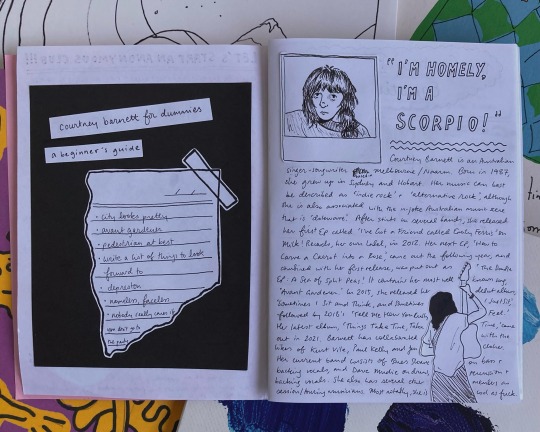 courtney barnett for dummies
a beginner's guide
• city looks pretty
• avant gardener
• pedestrian at best
• write a list of things to look
forward to
• depreston
• nameless, faceless
• nobody really cares if
you don't go to
the party
"I'M HOMELY,
I'M A
SCORPIO!"
Courtney Barnett is an Australian
singer-songwriter from Melbourne / Naarm. Born in 1987,
she grew up in Sydney and Hobart. Her music can best
be described as 'indie rock' or 'alternative rock', although
she is also associated with the ... Australian music scene
that is 'dolewave'. After stints in several bands, she released
her first EP called 'I've Got a Friend called Emily Ferris' on
Milk! Records, her own label, in 2012. Her next EP, 'How to
Carve a Carrot into a Rose', came out the following year, and
combined with her first release, was put out as 'The Double
EP: A Sea of Split Peas'. It contains her most well known song,
'Avant Gardener'. In 2015, she released her debut album,
'Sometimes I Sit and Think, and Sometimes I Just Sit',
followed by 2018's 'Tell Me How You Really Feel'.
Her latest album, 'Things Take Time, Take Time', came
out in 2021. Barnett has collaborated with the
likes of Kurt Vile, Paul Kelly and Jen Cloher.
Her current band consists of Bones Sloane on bass +
backing vocals, and Dave Mudie on percussion +
backing vocals. She also has several other members on
session/touring musicians. Most notably, she is cool as fuck.